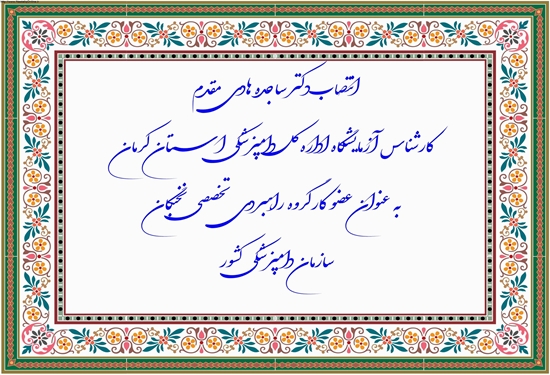 انتصاب دکتر ساجده هادی مقدم
کارشناس آزمایشگاه اداره کل دامپزشکی استان کرمان
به عنوان عضو کارگروه راهبردی تخصصی نخبگان
سازمان دامپزشکی کشور